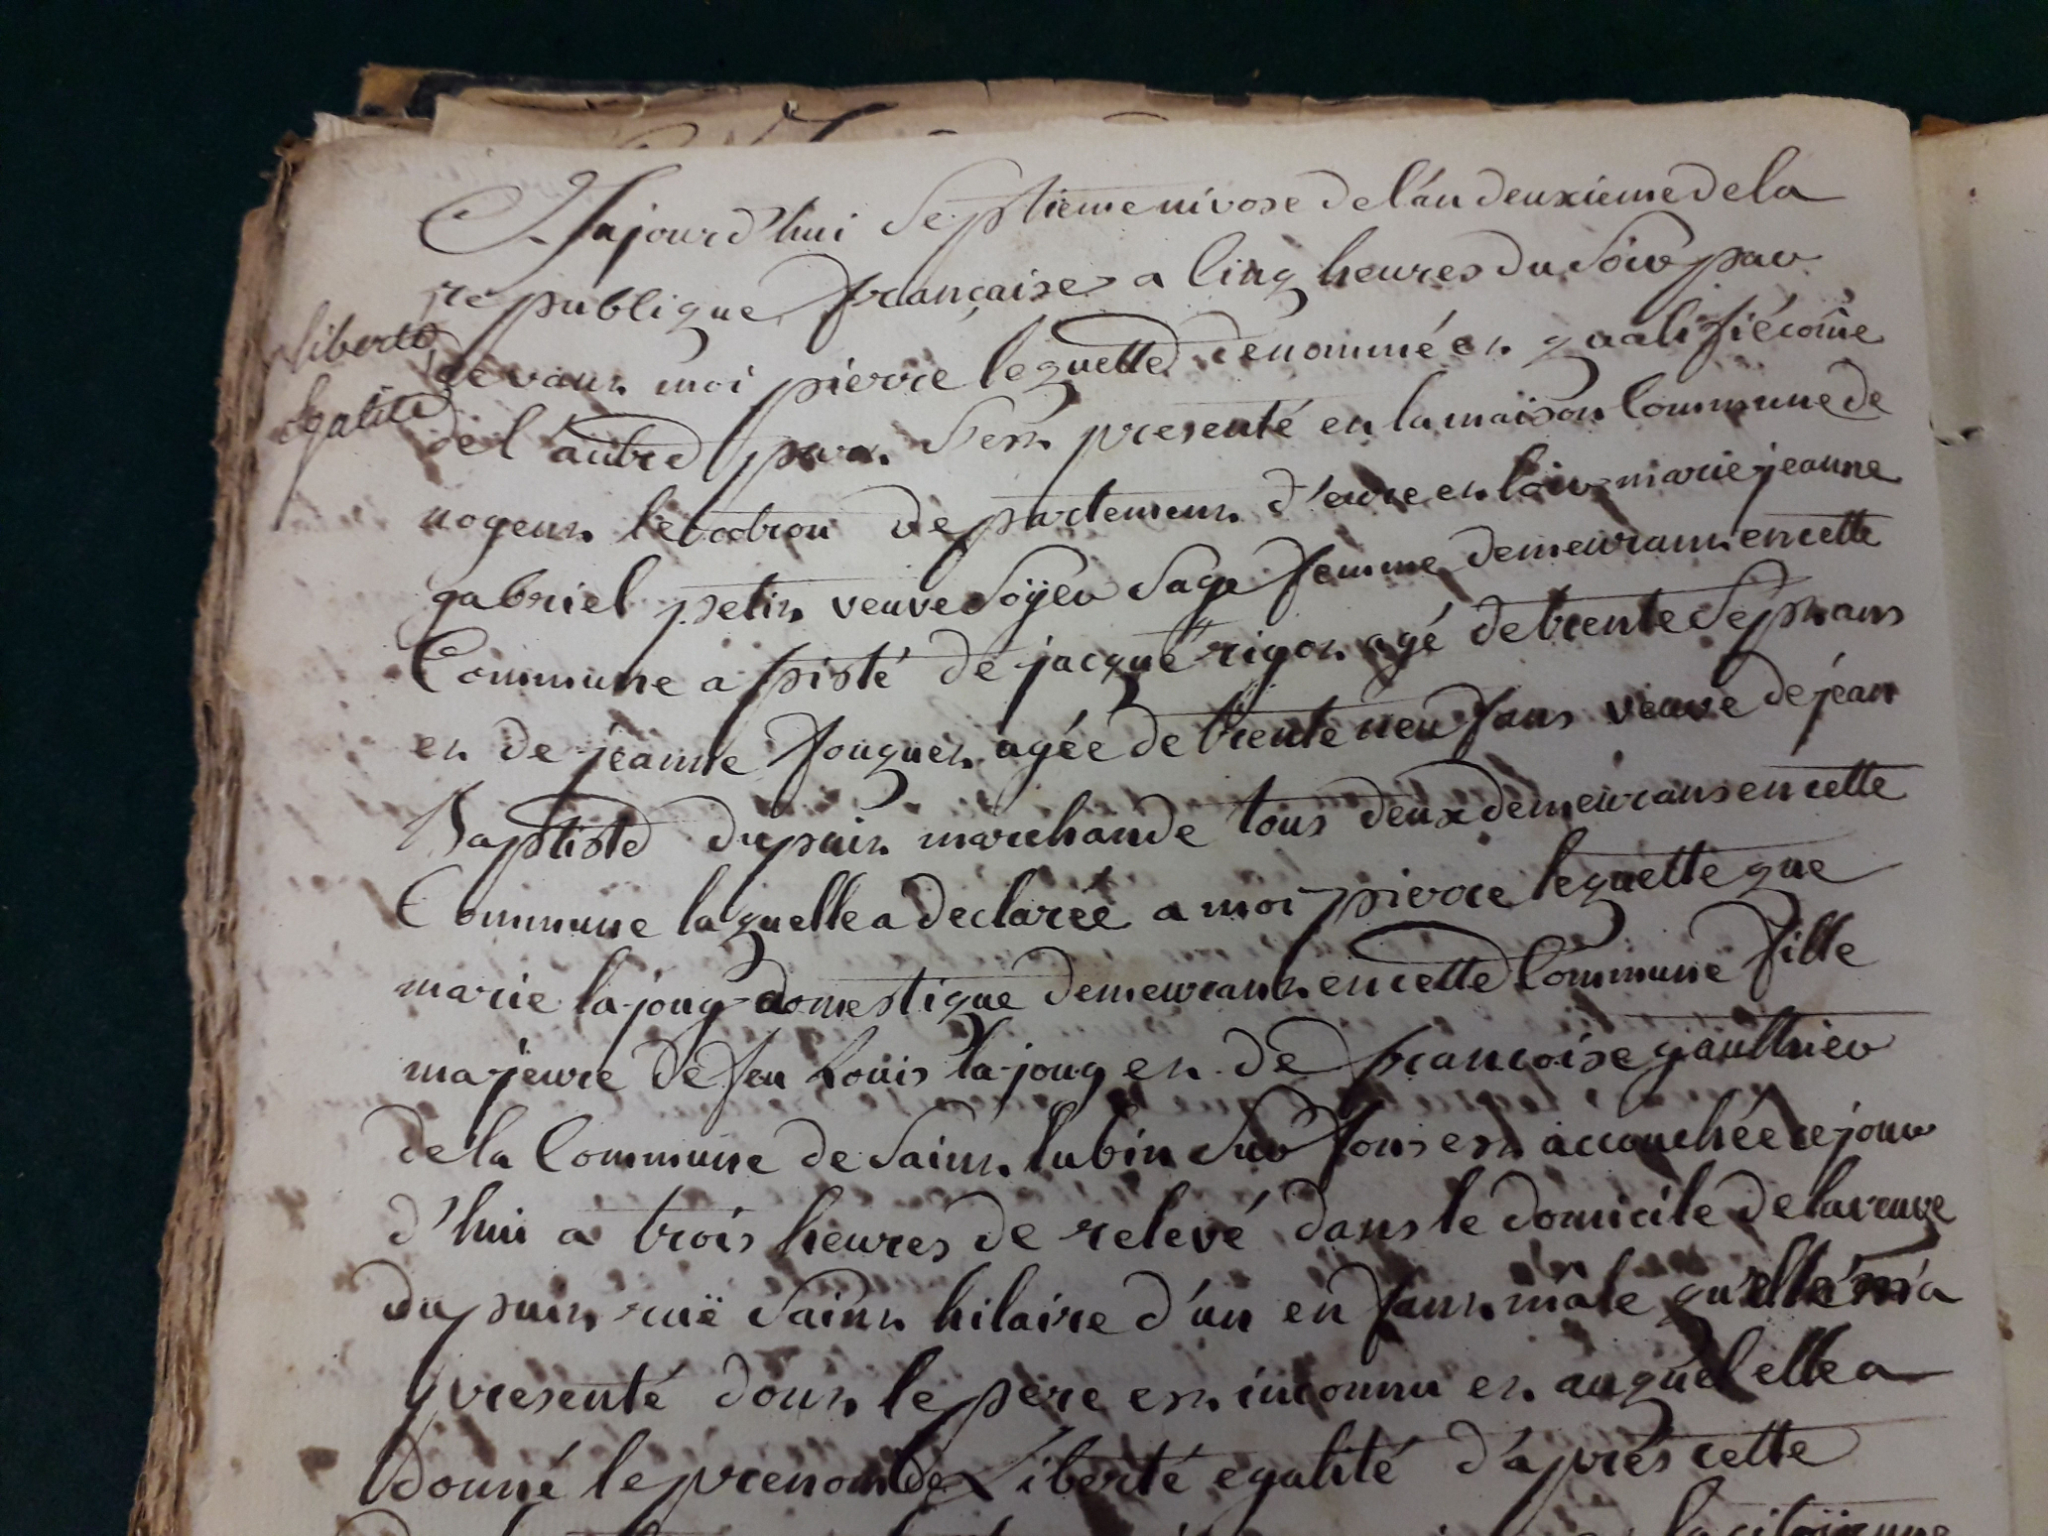 Aujourd'hui Septieme nivose de l'an deuxieme de la
republique française a Cinq heures du Soir par
liberté
devant moi pierre lequette denommé et qualifié come
Egalité
de l'autre part S'est presenté en la maison Commune de
nogent le rotrou departement d'eure et loir marie jeanne
gabriel petit veuve Soÿer Sage femme demeurant en cette
Commune a sisté de jacque rigot agé de trente Sept ans
et de jeanne fouquet agée de trente neuf ans veuve de jean
Baptiste dupuit marchande tous deux demeurans en cette
Commune laquelle a declarée a moi pierre lequette que
marie la joug domestique demeurant en cette Commune fille
majeure de feu Loüis la joug et de francoise gaulthier
de la Commune de Saint lubin Sur fons est accouchée ce jour
d'hui a trois heures de relevé dans le domicile de la veuve
dupuit ruë Saint hilaire d'un enfant mâle qu'elle m'a
presenté dont le pere est inconnu et auquel elle a
donné le prenom de Liberté egalité d'après cette
la citöÿenne